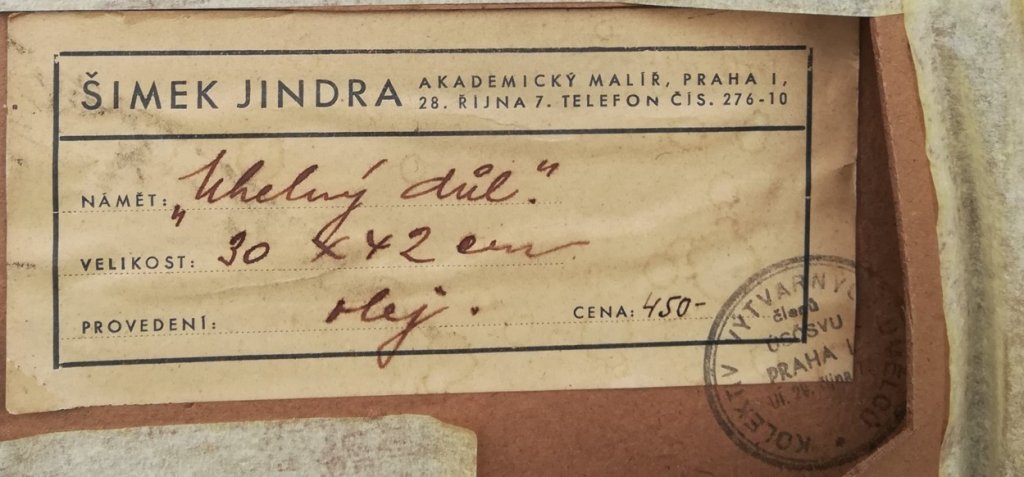 ŠIMEK JINDRA AKADEMICKÝ MALÍŘ, PRAHA I,
28. ŘÍJNA 7. TELEFON ČÍS. 276-10
NÁMĚT: „Uhelný důl."
VELIKOST: 30 x 42 cm
PROVEDENÍ: olej. CENA: 450-
KOLEKTIV VÝTVARNÝCH UMĚLCŮ
členů
ÚSČSVU
PRAHA I.
Ul. 28. října